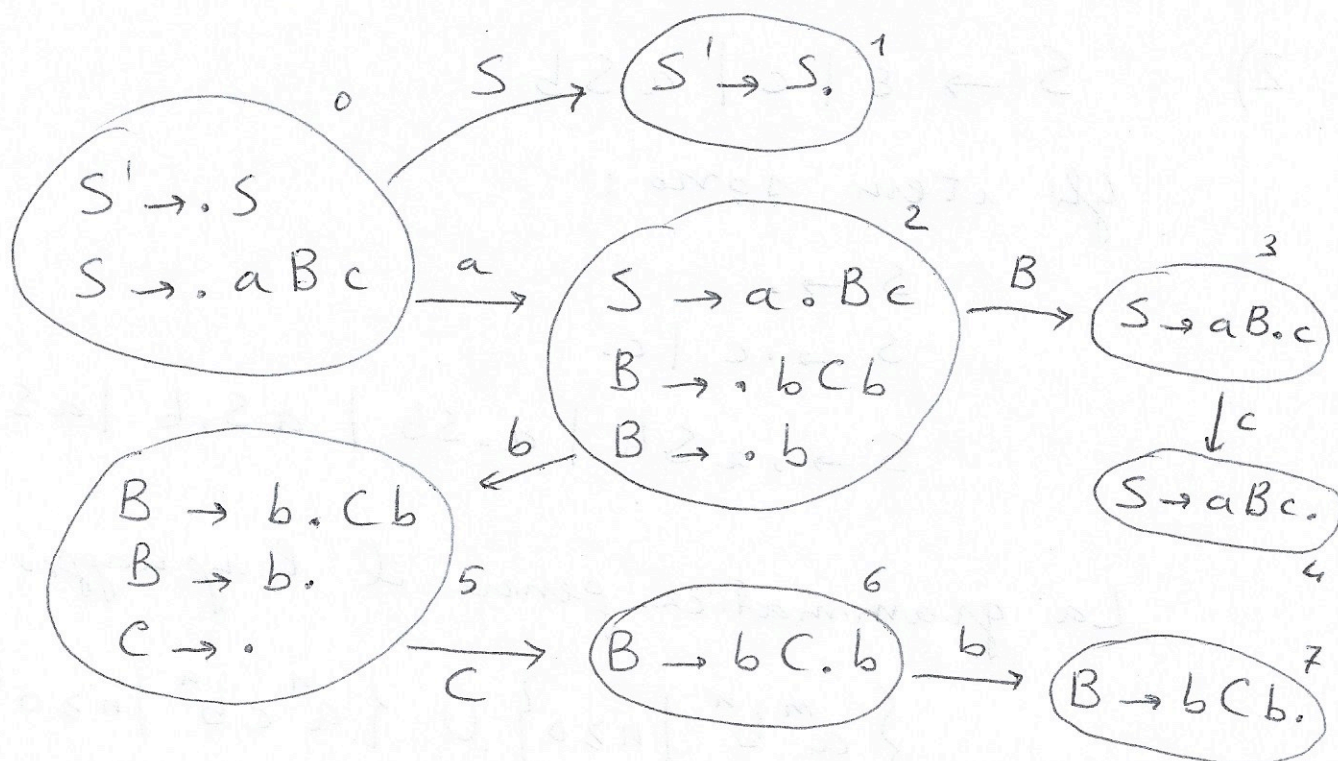 S
S' → S.
1
0
S' → . S
S → . a B c
a
2
S → a . B c
B → . b C b
B → . b
B
3
S → a B . c
c
S → a B c .
4
b
B → b . C b
B → b .
C → .
5
C
6
B → b C . b
b
7
B → b C b .